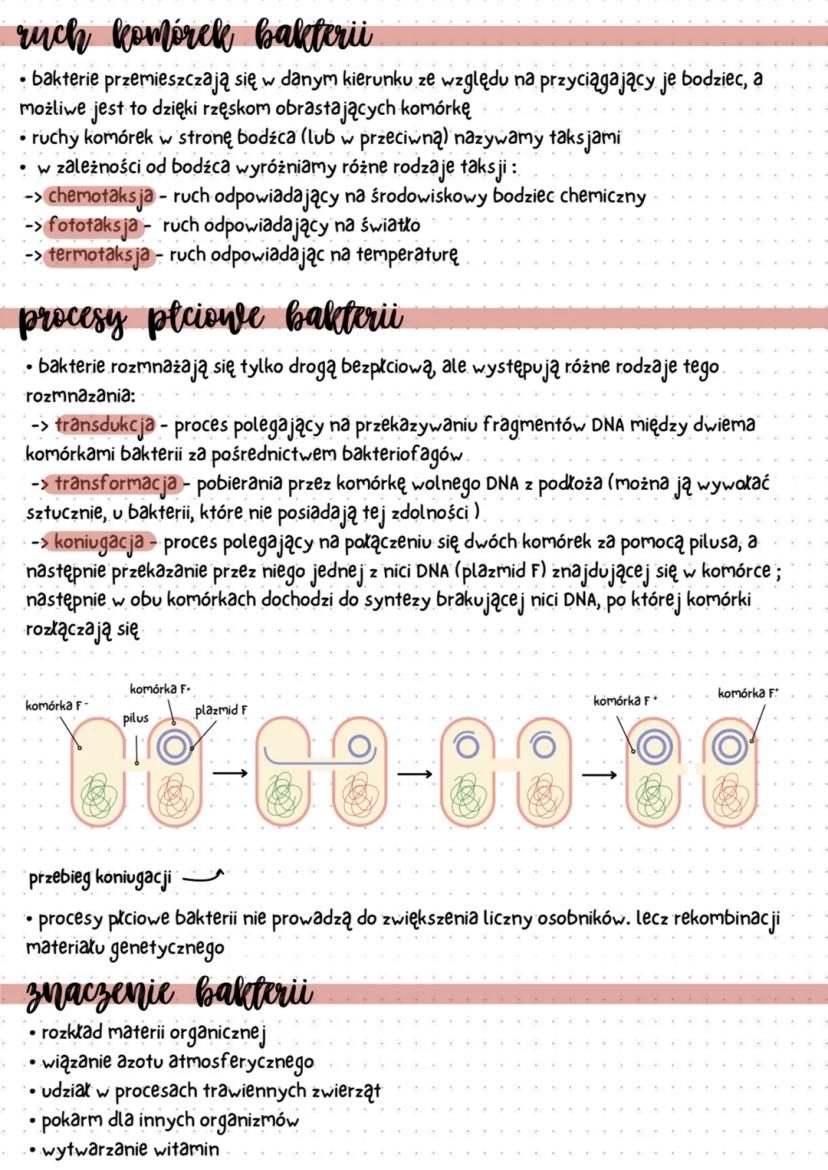 ruch komórek bakterii
• bakterie przemieszczają się w danym kierunku ze względu na przyciągający je bodziec, a
możliwe jest to dzięki rzęskom obrastających komórkę
• ruchy komórek w stronę bodźca (lub w przeciwną) nazywamy taksjami
• w zależności od bodźca wyróżniamy różne rodzaje taksji :
-> chemotaksja - ruch odpowiadający na środowiskowy bodziec chemiczny
-> fototaksja - ruch odpowiadający na światło
-> termotaksja - ruch odpowiadając na temperaturę
procesy płciowe bakterii
• bakterie rozmnażają się tylko drogą bezpłciową, ale występują różne rodzaje tego
rozmnazania:
-> transdukcja - proces polegający na przekazywaniu fragmentów DNA między dwiema
komórkami bakterii za pośrednictwem bakteriofagów
-> transformacja - pobierania przez komórkę wolnego DNA z podłoża (można ją wywołać
sztucznie, u bakterii, które nie posiadają tej zdolności )
-> koniugacja - proces polegający na połączeniu się dwóch komórek za pomocą pilusa, a
następnie przekazanie przez niego jednej z nici DNA (plazmid F) znajdującej się w komórce ;
następnie w obu komórkach dochodzi do syntezy brakującej nici DNA, po której komórki
rozłączają się
komórka F-
pilus
komórka F+
plazmid F
komórka F+
komórka F+
przebieg koniugacji
• procesy płciowe bakterii nie prowadzą do zwiększenia liczny osobników. lecz rekombinacji
materiału genetycznego
znaczenie bakterii
• rozkład materii organicznej
• wiązanie azotu atmosferycznego
• udział w procesach trawiennych zwierząt
• pokarm dla innych organizmów
• wytwarzanie witamin